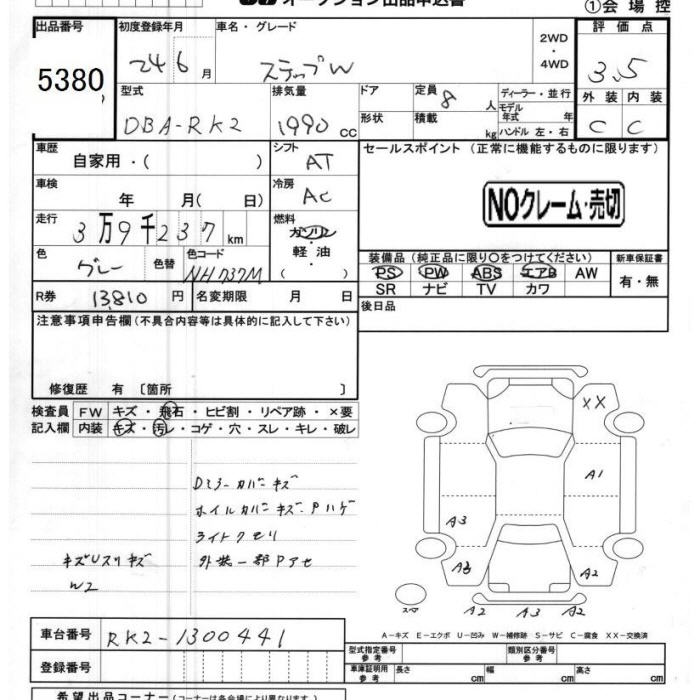 オークション出品申込書 ①会場控
出品番号 初度登録年月 車名・グレード 2WD・4WD 評価点
5380 24 6月 ステップW 3.5
型式 排気量 ドア 定員 8人 ディーラー・並行 外装 内装
DBA-RK2 1990cc 形状 積載 kg モデル年式 年 ハンドル 左・右 C C
車歴 自家用・( ) シフト AT セールスポイント (正常に機能するものに限ります)
車検 年 月( 日) 冷房 AC NOクレーム・売切
走行 3万9千237km 燃料 ガソリン・軽油・( )
色 グレー 色替 色コード NH737M 装備品 (純正品に限り〇をつけてください) 新車保証書
PS PW ABS エアB AW 有・無
SR ナビ TV カワ
R券 13,810円 名変期限 月 日 後日品
注意事項申告欄 (不具合内容等は具体的に記入して下さい)
修復歴 有 〔箇所 〕
検査員 FW キズ・飛石・ヒビ割・リペア跡・×要
記入欄 内装 キズ・汚レ・コゲ・穴・スレ・キレ・破レ
Dミラーカバーキズ
ホイルカバーキズ・Pハゲ
ライトクモリ
キズUスリキズ 外装一部Pアセ
W2
XX
A1
A3
A3 A2
スペア A2 A3 A2
A-キズ E-エクボ U-凹み W-補修跡 S-サビ C-腐食 XX-交換済
車台番号 RK2-1300441
登録番号
型式指定番号 参考 類別区分番号 参考
車庫証明用 参考 長さ cm 幅 cm 高さ cm
希望出品コーナー (コーナーは各会場により異なります)